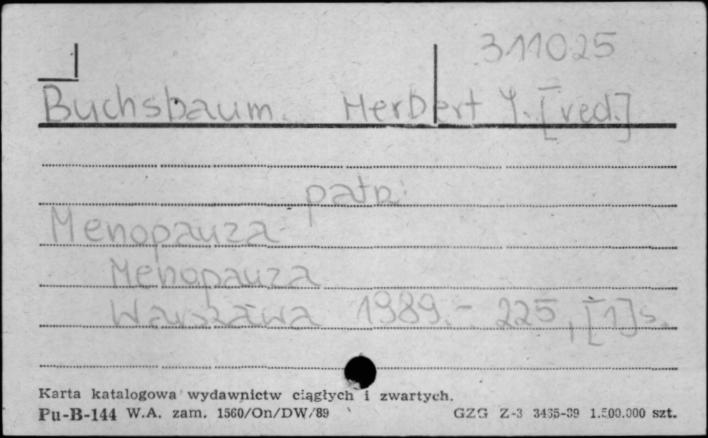 311025
Buchsbaum Herbert J. [red.]
patrz:
Menopauza
Menopauza
Warszawa 1989.- 225, [1] s.
Karta katalogowa wydawnictw ciągłych i zwartych.
Pu-B-144 W.A. zam. 1560/On/DW/89 GZG Z-3 3435-89 1.500.000 szt.